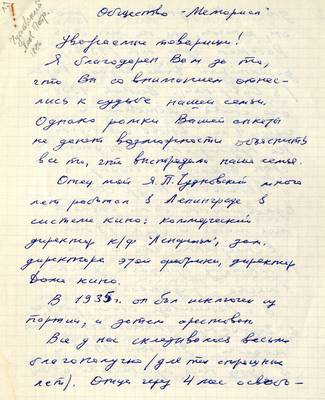 Общество "Мемориал"
Чудновский
Уважаемые товарищи!
Я благодарен Вам за то,
что Вы со вниманием отнес-
лись к судьбе нашей семьи.
Однако рамки Вашей анкеты
не дают возможности объяснить
все то, что выстрадала наша семья.
Отец мой Я.П. Чудновский много
лет работал в Ленинграде в
системе кино: коммерческий
директор к/ф "Ленфильм", зам.
директора этой фабрики, директор
Дома кино.
В 1935г. он был исключен из
партии, а затем арестован
Все у нас складывалось весьма
благополучно (для тех страшных
лет). Отца через 4 мес освобо-